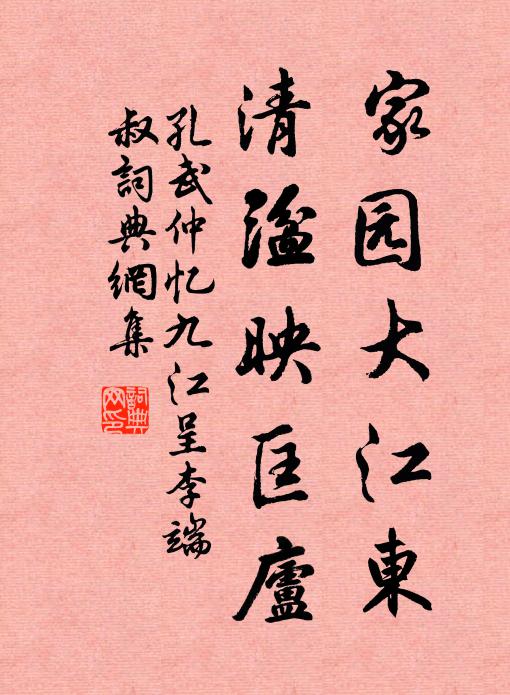 家园大江東
清湓映匡廬
孔武仲忆九江呈李端
叔詞典網集
詞典
网印